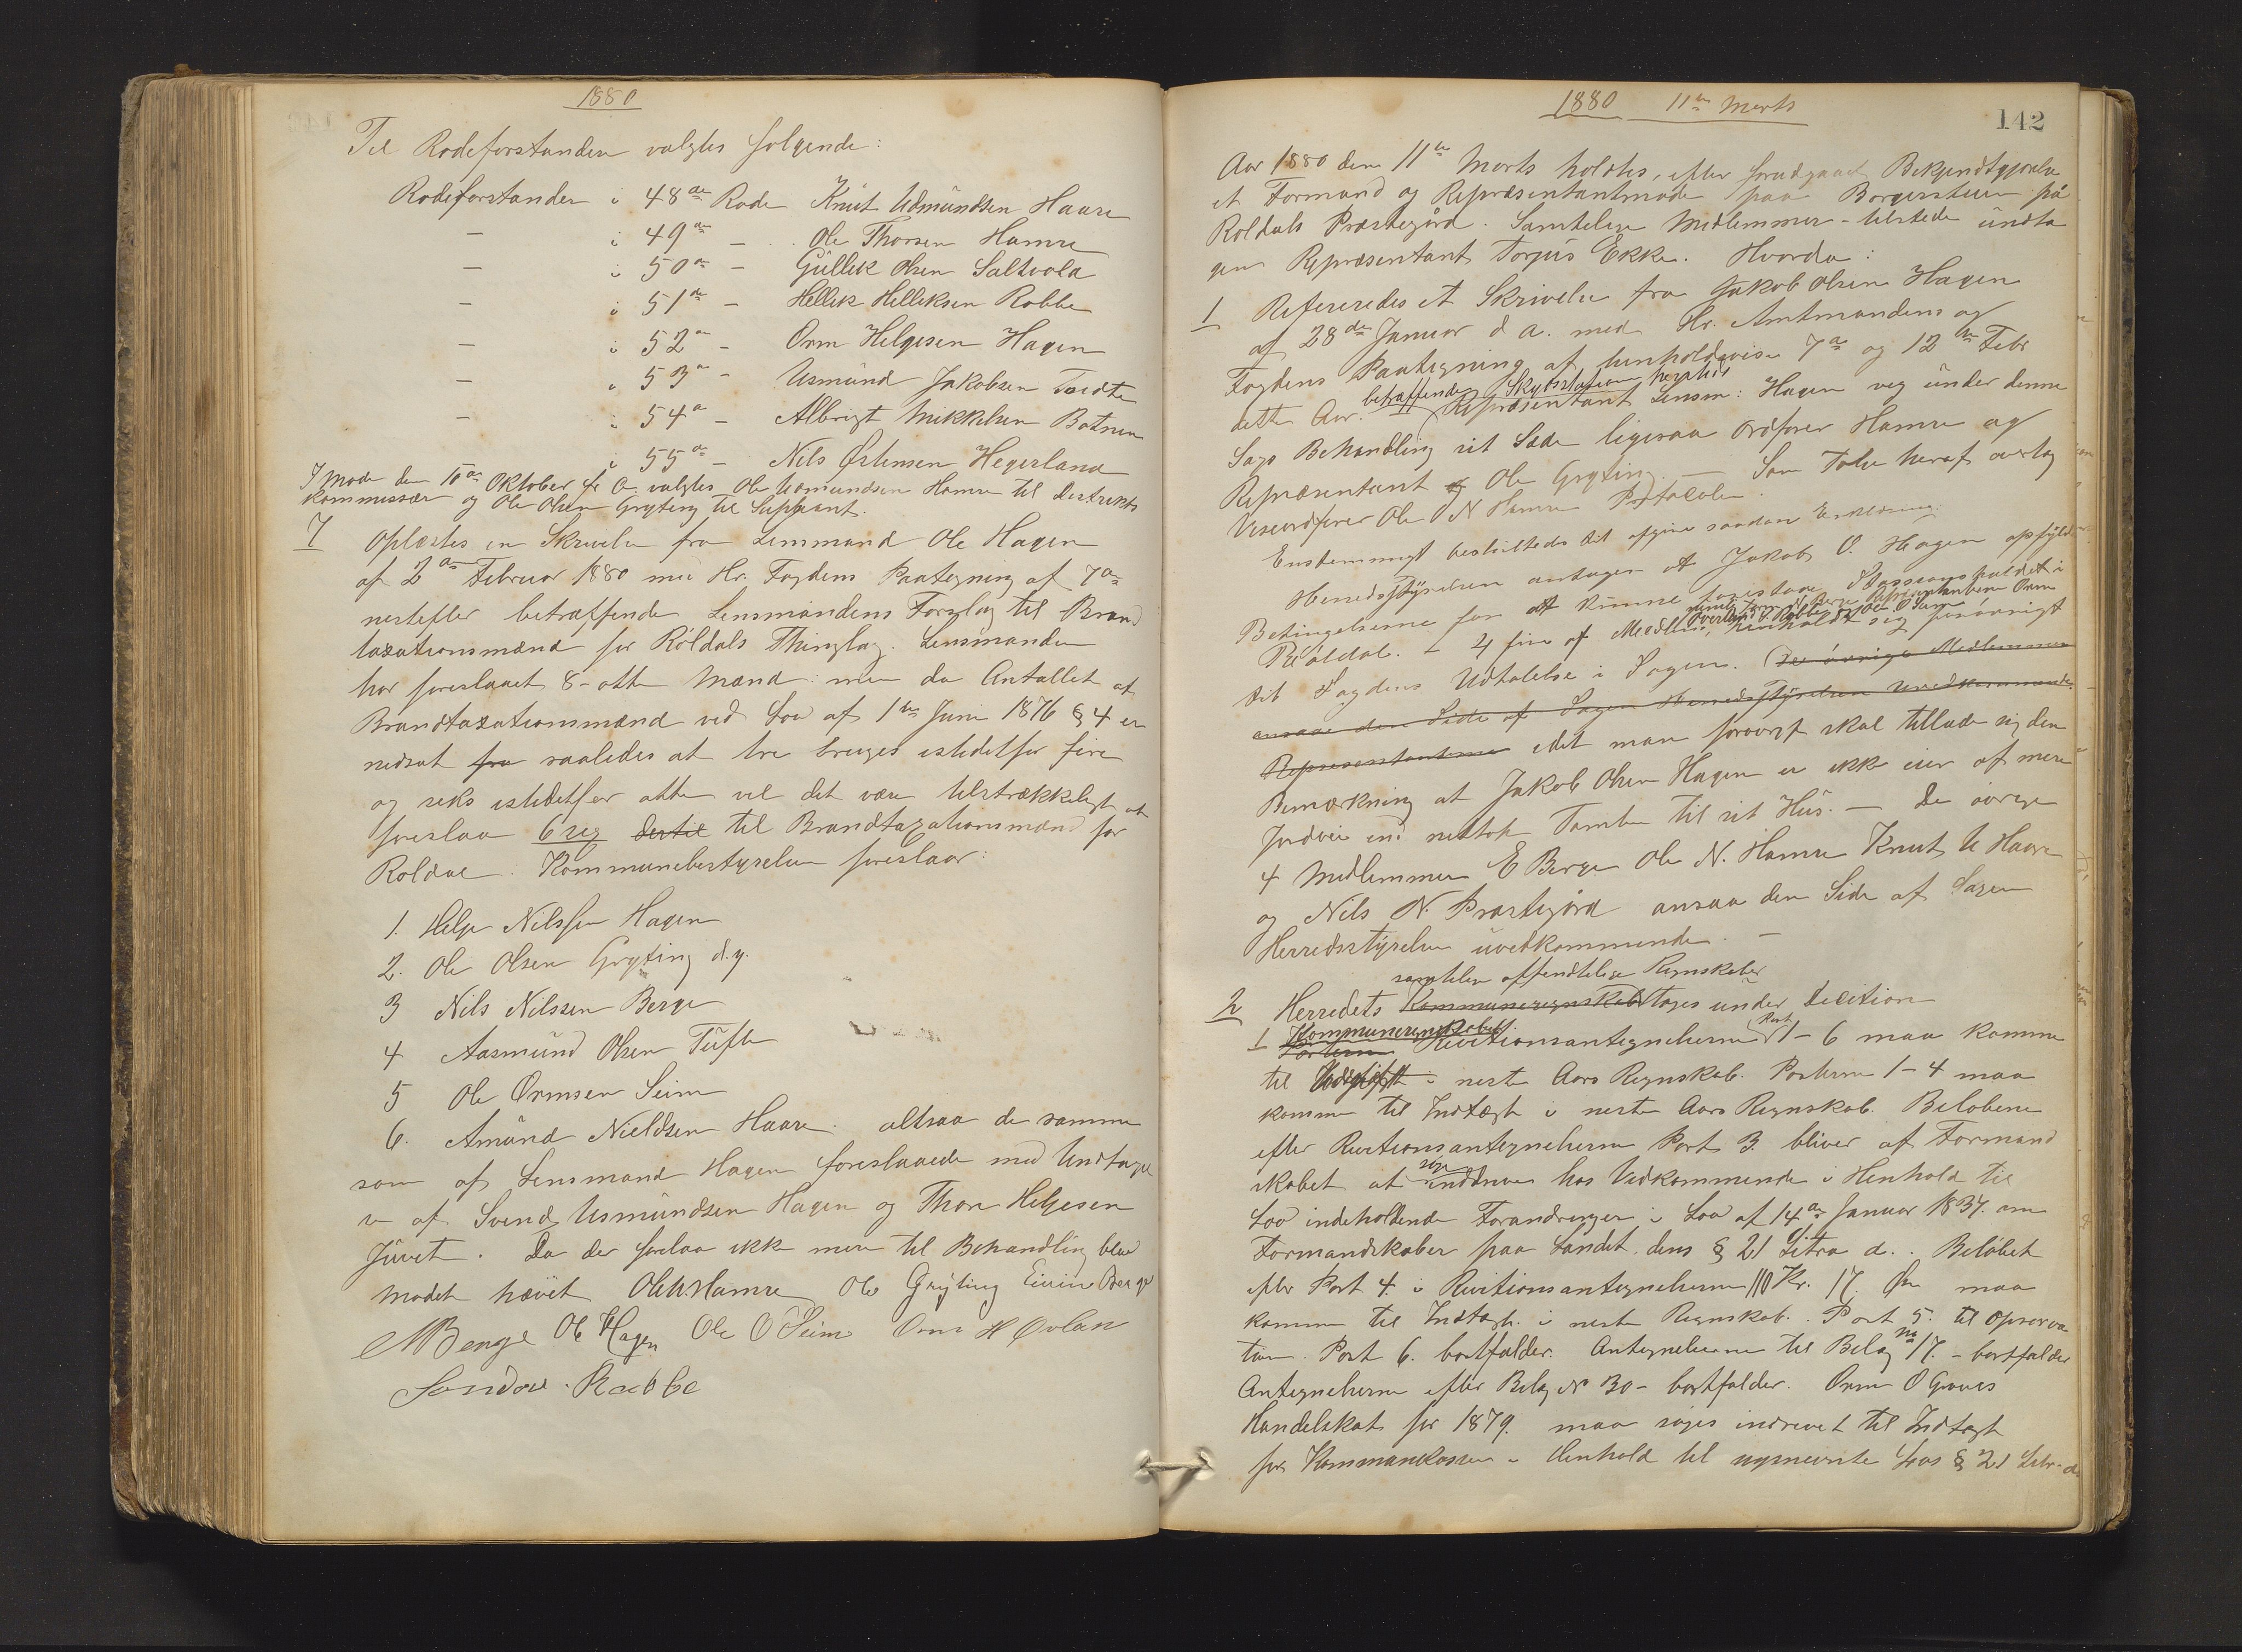 1880
Til Rodeforstandere valgtes følgende:
Rodeforstander i 48de Rode Knut Udmundsen Haare
— i 49de — Ole Thorsen Hamre
— i 50de — Gullek Olsen Saltvold
— i 51de — Hellek Helleksen Rabbe
— i 52de — Orm Helgesen Hagen
— i 53de — Asmund Jakobsen
— i 54de — Albrigt Mikkelsen Botnen
i 55de — Nils Østensen Hegerland
I Møde den 15de Oktober s. A. valgtes Ole Aasmundsen Hamre til Distrikts
kommissær og Ole Olsen Gryting til Supleant.
7 Oplæstes en Skrivelse fra Lensmand Ole Hagen
af 2den Februar 1880 med Hr. Fogdens Paategning af 7de
nestefter betræffende Lensmandens Forslag til Brand
taxationsmænd for Røldals Thinglag. Lensmanden
har foreslaaet 8-otte Mænd: men da Antallet af
Brandtaxationsmænd ved Lov af 1ste Juni 1876 § 4 er
nedsat fra saaledes at tre bruges istedetfor fire
og seks istedetfor otte vil det være tilstrækkeligt at
foreslaa 6 sex dertil til Brandtaxationsmænd for
Røldal. Kommunebestyrelsen foreslaar:
1. Helge Nilssen Hagen
2. Ole Olsen Gryting d.y.
3 Nils Nilssen Berge
4 Aasmund Olsen Tufte
5 Ole Ormsen Seim
6. Amund Nieldsen Haare. altsaa de samme
som af Lensmand Hagen foreslaaede med Undtagel
se af Svend Asmundsen Hagen og Thore Helgesen
Juvet. Da der forelaa ikke mere til Behandling blev
Mødet hævet Ole A Hamre Ole Gryting Eivin Berge
N Berge Ole Hagen Ole O Seim Orm H Øvland
Sondov Rabbe
1880 11te Marts
142
Aar 1880 den 11te Marts holdtes, efter forudgaaed Bekjendtgjørelse
et Formand og Repræsentantmøde paa Borgerstuen på
Roldals Præstegård. Samtelige Medlemmer tilstede undta
gen Repræsentant Torjus Ekkje. Hvorda:
1 Refereredes et Skrivelse fra Jakob Olsen Hagen
af 28de Januar d. A. med Hr. Amtmandens og
Fogdens Paategning af henholdsvise 7de og 12te Febr
betræffende Skydsstation hersteds
dette Aar. Repræsentant Lensm: Hagen veg under denne
Sags Behandling sit Sæde ligesaa Ordfører Hamre og
Repræsentant Ole Gryting. — Som Følge heraf overtog
Viseordfører Ole N Hamre Protocolen.
Enstemmigt besluttedes at afgive saadan Erklæring:
Herredsstyrelsen antager at Jakob O. Hagen opfylde
Betingelserne for at kunne forestaa Stassionsholdet i
nemlig Formd. Berge Repræsentanterne Orm
Øverland S Rabbe og Ole O Seim
Røldal. — 4 fire af Medlem. henholdt sig forøvrigt
til Fogdens Udtalelse i Sagen. De øvrige Medlemmer
ansaa den Side af Sagen Herredsstyrelsen uvedkommende.
Representanterne idet man forøvrigt skal tillade sig den
Bemærkning at Jakob Olsen Hagen er ikke eier af mere
Jordvei end nettop Tomten til sit Hus. — De øvrige
4 Medlemmer E Berge Ole N. Hamre Knut A Haare
og Nils N. Præstegård ansaa den Side af Sagen
Herredsstyrelsen uvedkommende. —
samtlige offendtlige Regnskaber
2 Herredets Kommuneregnskab toges under Decition
1 Kommuneregnskabet.
Posterne Revitionsantegnelserne Post 1-6 maa komme
til Udgift i neste Aars Regnskab. Posterne 1-4 maa
komme til Indtægt i neste Aars Regnskab. Beløbene
efter Revitionsantegnelserne Post 3. bliver af Formand
skabet at søge inddreven hos Vedkommende i Henhold til
Lov indeholdende Forandringer i Lov af 14de Januar 1837. om
Formandskaber paa Landet, dens § 21 Litra d. Beløbet
efter Post 4. i Revitionsantegnelserne 110 Kr. 17 Øre maa
komme til Indtægt i neste Regnskab. Post 5. til Opserva
tion. Post 6. bortfalder. Antegnelserne til Bilag No 17 - bortfalder
Antegnelserne efter Bilag No 30 - bortfalder. Orm O Graves
Handelskat for 1879. maa søges inddrevet til Indtægt
for Kommunekassen i Henhold til nysnevnte Lovs § 21 Litr. d.